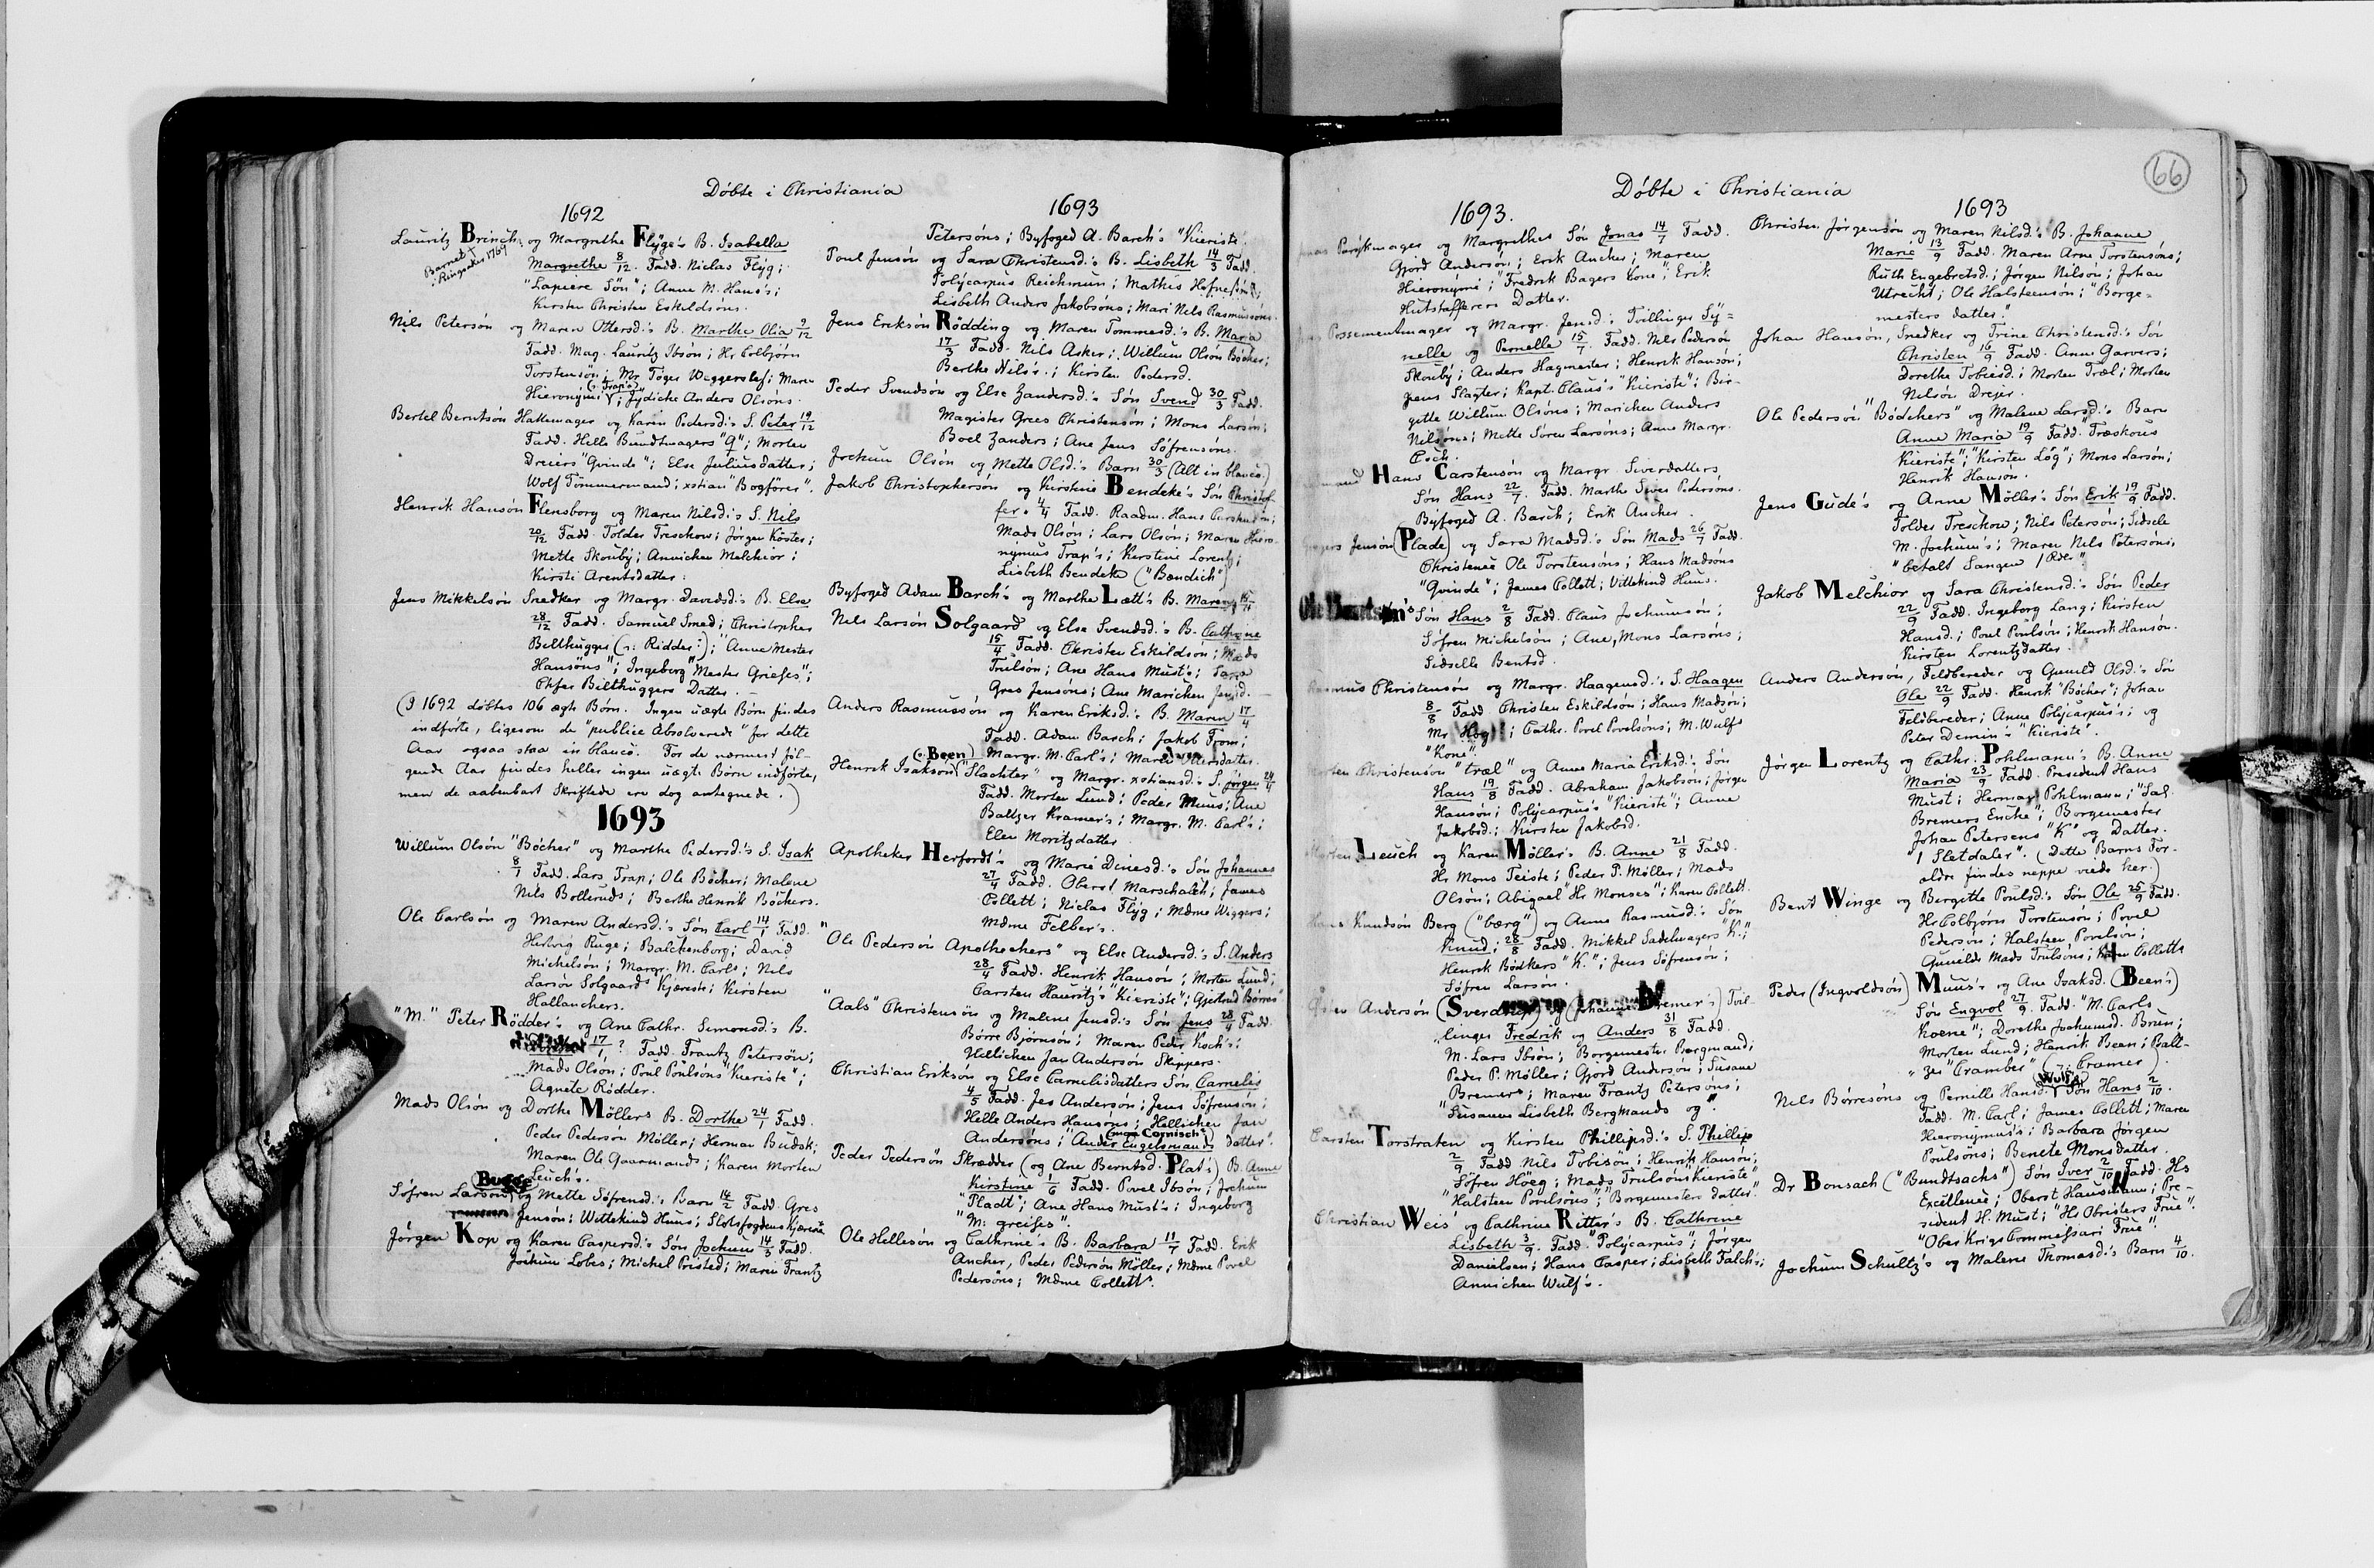 Döbte i Christiania
1692
Lauritz Brinch og Margrethe Flyge's B. Isabella
Barnet +
Ringsaker 1769
Margrethe 8/12. Fadd. Niclas Flyg;
"Lapiere Sön"; Anne M. Hans's;
Kirsten Christen Eskildsöns.
Nils Petersön og Maren Ottersd.'s B. Marthe Olia 9/12
Fadd. Mag. Lauritz Ibsön; Hr Colbjörn
Torstensön; Mr Töger Waggersløf; Maren
(: Trap's)
Hieronymi; Jydiche Anders Olsöns.
Bertel Berntsön Hattemager og Karen Pedersd.'s S. Peter 19/12
Fadd. Helle Bundtmagers "Q"; Morten
Dreiers "Qvinde"; Else Juliusdatter;
Wolf Tömmermand; xstian "Bogförer".
Henrik Hansön Flensborg og Maren Nilsd.'s S. Nils
20/12 Fadd. Tolder Treschow; Jörgen Köster;
Mette Skouby; Annichen Melchior;
Kirsti Arentsdatter.
Jens Mikkelsön Snedker og Margr. Davidsd.'s B. Else
28/12 Fadd. Samuel Smed; Christopher
Bilthugger (: Ridder:); "Anne Mester
Hansöns"; Ingeborg "Mester Griefes";
Chfer Bilthuggers Datter.
(I 1692 döbtes 106 ægte Börn. Ingen uægte Börn findes
indförte, ligesom de "publice Absolverede" for dette
Aar ogsaa staa in blanco. For de nærmest föl-
gende Aar findes heller ingen uægte Börn indförte,
men de aabenbart Skriftede ere dog antegnede.)
1693
Willum Olsön "Böcher" og Marthe Pedersd.'s S. Isak
8/1 Fadd. Lars Trap; Ole Böcher; Malene
Nils Bolleruds; Berthe Henrik Böchers.
Ole Carlsön og Maren Andersd.'s Sön Carl 14/1 Fadd.
Hedvig Ruge; Balchenborg; David
Michelsön; Margr. M. Carls; Nils
Larsön Solgaards Kjæreste; Kirsten
Hollanchers.
"M." Peter Rödder's og Ane Cathr. Simonsd.'s B.
17/1? Fadd. Frantz Petersön;
Mads Olsön; Poul Poulsöns "Kieriste";
Agnete Rödder.
Mads Olsön og Dorthe Möllers B. Dorthe 24/1 Fadd.
Peder Pedersön Möller; Herman Budsk;
Maren Ole Gaarmands; Karen Morten
Leuch's.
Bugge
Söfren Larsön og Mette Söfrensd.'s Barn 14/2 Fadd. Gres
Jensön; Wittekind Huus; Slotsfogdens Kjæreste
Jörgen Kop og Karen Caspersd.'s Sön Jochum 14/3 Fadd.
Jochum Lobes; Michel Pristed; Maren Frantz
1693
Petersöns; Byfoged A. Barch's "Kieriste.
Poul Jensön og Sara Christensd.'s B. Lisbeth 14/3 Fadd.
Polycarpus Reichmun; Mathis
Lisbeth Anders Jakobsöns; Mari Nils Rasmussöns.
Jens Eriksön Rödding og Maren Tommesd.'s B. Maria
17/3 Fadd. Nils Asker; Willum Olsön Böcher;
Berthe Nils's.; Kirsten Pedersd.
Peder Svendsön og Else Zandersd.'s Sön Svend 30/3 Fadd.
Magister Grees Christensön; Mons Larsön;
Boel Zanders; Ane Jens Söfrensöns.
Jochum Olsön og Mette Olsd.'s Barn 30/3 (Alt in blanco.)
Jakob Christophersön og Kirstine Bendeke's Sön Christof-
fer 4/4 Fadd. Raadm. Hans Carstensön;
Mads Olsön; Lars Olsön; Maren Hiero-
nymus Trap's; Kirstine Lorentz;
Lisbeth Bendeke ("Bændich")
Byfoged Adam Barch's og Marthe Lætt's B. Maren 15/4
Nils Larsön Solgaard og Else Svendsd.'s B. Cathrine
15/4 Fadd. Christen Eskildsön; Mads
Trulsön; Ane Hans Must's; Sara
Gres Jensöns; Ane Marichen Jensd.
Anders Rasmussön og Karen Eriksd.'s B. Maren 17/4
Fadd. Adam Barch; Jakob From;
Margr. M. Carl's; Maren Iversdatter.
(: Been)
Henrik Isaksön "Slachter" og Margr. xstiansd.'s S. Jörgen 24/4
Fadd. Morten Lund; Peder Muus; Ane
Baltzer Kramer's; Margr. M. Carl's;
Elen Moritzdatter
Apotheker Herfordt's og Marie Dinesd.'s Sön Johannes
27/4 Fadd. Oberst Marschalch; James
Collett; Niclas Flyg; Mdme Wiggers;
Mdme Felber's.
"Ole Pedersön Apothechers" og Else Andersd.'s S. Anders
28/4 Fadd. Henrik Hansön; Morten Lund;
Carsten Hauritz's "Kieriste"; Gjertrud "Börres"
"Aals" Christensön og Malene Jensd.'s Sön Jens 28/4 Fadd.
Börre Björnsön; Maren Peder Koch's;
Hellichen Jan Andersön Skipper.
Christian Eriksön og Else Cornelisdatters Sön Cornelis
4/5 Fadd. Jes Andersön; Jens Söfrensön;
Helle Anders Hansöns; Hellichen Jan
Andersöns; "Ander Engelsmands Datter".
Peder Pedersön Skrædder (og Ane Berntsd. Plat's) B. Anne
Kirstine 1/6 Fadd. Povel Ibsön; Jochum
"Pladt"; Ane Hans Must's; Ingeborg
"M: greifes".
Ole Hellisön og Cathrine's B. Barbara 11/7 Fadd. Erik
Ancher, Peder Pedersön Möller; Mdme Povel
Pedersöns; Mdme Collett's.
66
Döbte i Christiania
1693.
og Margrethes Sön Jonas 14/7 Fadd.
Gjord Andersön; Erik Ancher; Maren
Hieronymi; "Fredrik Bagers Kone"; Erik
Hutstafferers Datter.
Possementmager og Margr. Jensd.'s Tvillinger Sy-
nelle og Pernelle 15/7. Fadd. Nils Pedersön
Skouby; Anders Hagmester; Henrik Hansön;
Jens Slagter; Kapt. Claus's "Kieriste"; Bir-
gitte Willum Olsöns; Marichen Anders
Nilsöns; Mette Sören Larsöns; Anne Margr.
Hans Carstensön og Margr. Siverdatters
Sön Hans 22/7. Fadd. Marthe Sives Pedersöns.
Byfoged A. Barch; Erik Ancher.
Jensön (Plade) og Sara Madsd.'s Sön Mads 26/7 Fadd.
Christence Ole Torstensöns; Hans Madsöns
"Qvinde"; James Collett; Vittekind Huus.
Sön Hans 2/8 Fadd. Claus Jochumsön;
Söfren Michelsön; Ane, Mons Larsöns;
Sidselle Bentsd.
Rasmus Christensön og Margr. Haagensd.'s S. Haagen
8/8 Fadd. Christen Eskildsön; Hans Madsön;
Mr ; Cathr. Povel Povelsöns; M. Wulfs
"Kone"
Morten Christensön "træl" og Anne Maria Eriksd.'s Sön
Hans 19/8 Fadd. Abraham Jakobsön; Jörgen
Hansön; Polycarpus's "Kieriste"; Anne
Jakobsd.; Kirsten Jakobsd.
Morten Leuch og Karen Möller's B. Anne 21/8 Fadd.
Hr Mons Teiste; Peder P. Möller; Mads
Olsön; Abigael "Hr Monses"; Karen Collett.
Hans Knudsön Berg ("bærg") og Anne Rasmusd.'s Sön
Knud; 28/8 Fadd. Mikkel Sadelmagers "K.";
Henrik Bödkers "K."; Jens Söfrensön;
Söfren Larsön.
Andersön (Sverdrup) og (Johanne Bremer's) Tvil-
linger Fredrik og Anders 31/8 Fadd.
M. Lars Ibsön; Borgemester Bergmand;
Peder P. Möller; Gjord Andersön; Susane
Bremers; Maren Frantz Petersöns;
"Susanna Lisbeth Bergmands og".
Carsten Torstraten og Kirsten Phillipsd.'s S. Phillip
2/9 Fadd. Nils Tobisön; Henrik Hansön;
Söfren Höeg; Mads Trulsöns "Kieriste"
"Halsteen Poulsöns"; "Borgemesters datter".
Christian Weis' og Cathrine Ritter's B. Cathrine
Lisbeth 3/9. Fadd. "Polycarpus"; Jörgen
Danielsen; Hans Casper; Lisbeth Falch's;
Annichen Wulf's.
1693
Christen Jörgensön og Maren Nilsd.'s B. Johanne
Marie 13/9 Fadd. Maren Arne Torstensöns;
Ruth Engebretsd.; Jörgen Nilsön; Johan
Utrecht; Ole Halsteensön; "Borge-
mesters datter".
Johan Hansön, Snedker og Trine Christensd.'s Sön
Christen 16/9 Fadd. Anne Garvers;
Dorethe Tobiesd.; Morten Træl; Morten
Nilsön Drejer.
Ole Pedersön "Bödchers" og Malene Larsd.'s Barn
Anne Maria 19/9 Fadd. "Træskous
Kieriste"; "Kirsten Lög"; Mons Larsön;
Henrik Hansön.
Jens Gude's og Anne Möller's Sön Erik 19/9 Fadd.
Tolder Treschow; Nils Petersön; Sidsele
M. Jochum's; Maren Nils Petersöns,
"betalt Sangen 1 Rdl."
Jakob Melchior og Sara Christensd.'s Sön Peder
22/9 Fadd. Ingeborg Lang; Kirsten
Hansd.; Poul Poulsön; Henrik Hansön.
Kirsten Lorentzdatter.
Anders Andersön, Feldbereder og Gunild Olsd.'s Sön
Ole 22/9 Fadd. Henrik "Böcher"; Johan
Feldbereder; Anne Polycarpus's; og
Peter Demin's "Kieriste".
Jörgen Lorentz og Cathr. Pohlmann's B. Anne
Maria 23/9 Fadd. President Hans
Must; Herman Pohlmann; "Sal.
Bremers Enche"; Borgemester
Johan Petersens "K" og Datter.
"1 Sletdaler". (Dette Barns For-
ældre findes neppe viede her.)
Bent Winge og Birgitte Poulsd.'s Sön Ole 25/9 Fadd.
Hr Colbjörn Torstensön; Povel
Pedersön; Halsteen Povelsön;
Gunilde Mads Trulsöns; Karen Colletts
Peder (Ingvoldsön) Muus's og Ane Isaksd. (Been's)
Sön Engvol 27/9. Fadd. "M. Carls
Koene"; Dorethe Jochumsd. Brun;
Morten Lund; Henrik Been; Balt-
zer "Cramber" (: Cramer).
(Wulf)
Nils Börresöns og Pernille Hansd.'s Sön Hans 2/10.
Fadd. M. Carl; James Collett; Maren
Hieronymus's; Barbara Jörgen
Poulsöns; Benete Monsdatter.
Dr Bonsach ("Bundtsachs") Sön Iver 2/10 Fadd. Hs
Excellence; Oberst Hausmann; Pre-
sident H. Must; "Hr Obristers Frue".
"Ober Krigs Commissari Frue".
Jochum Schultz's og Malene Thomasd.'s Barn 4/10.